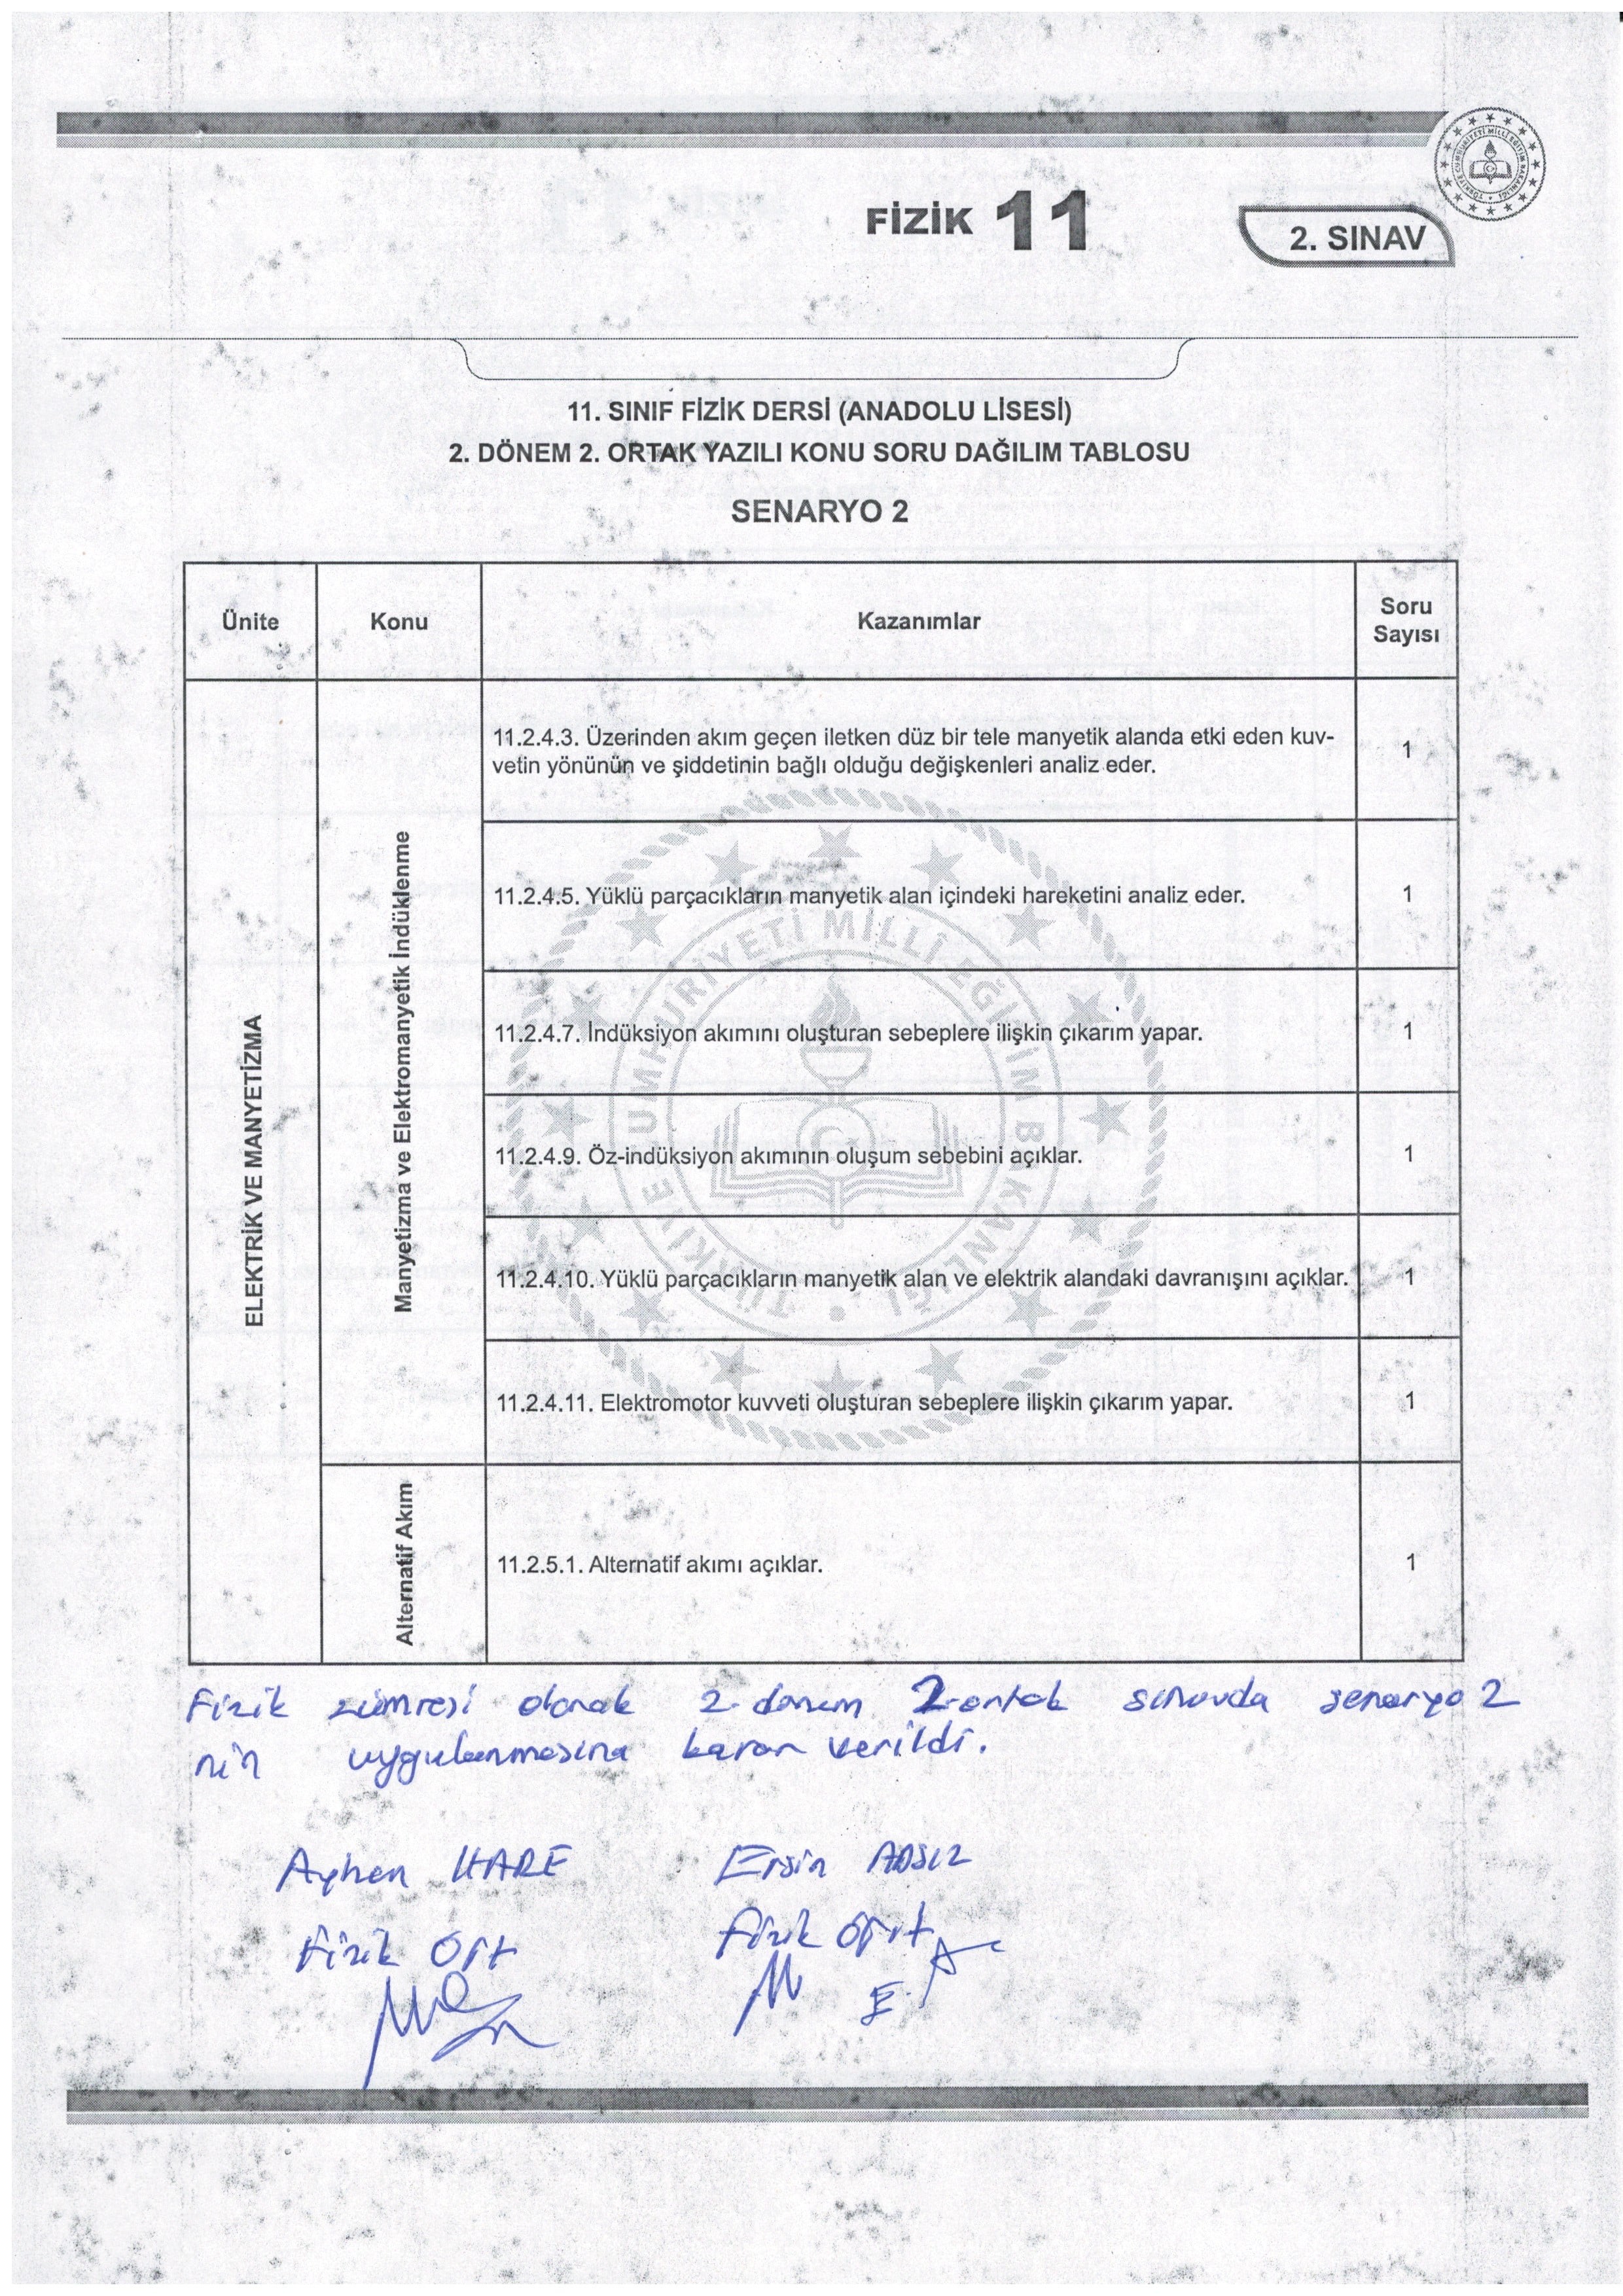 FİZİK 11
2. SINAV
11. SINIF FİZİK DERSİ (ANADOLU LİSESİ)
2. DÖNEM 2. ORTAK YAZILI KONU SORU DAĞILIM TABLOSU
SENARYO 2
Ünite
Konu
Kazanımlar
Soru
Sayısı
ELEKTRİK VE MANYETİZMA
Manyetizma ve Elektromanyetik İndüklenme
11.2.4.3. Üzerinden akım geçen iletken düz bir tele manyetik alanda etki eden kuv-
vetin yönünün ve şiddetinin bağlı olduğu değişkenleri analiz eder.
1
11.2.4.5. Yüklü parçacıkların manyetik alan içindeki hareketini analiz eder.
1
11.2.4.7. İndüksiyon akımını oluşturan sebeplere ilişkin çıkarım yapar.
1
11.2.4.9. Öz-indüksiyon akımının oluşum sebebini açıklar.
1
11.2.4.10. Yüklü parçacıkların manyetik alan ve elektrik alandaki davranışını açıklar.
1
11.2.4.11. Elektromotor kuvveti oluşturan sebeplere ilişkin çıkarım yapar.
1
Alternatif Akım
11.2.5.1. Alternatif akımı açıklar.
1
TÜRKİYE CUMHURİYETİ MİLLÎ EĞİTİM BAKANLIĞI
Fizik zümresi olarak 2. dönem 2. ortak sınavda senaryo 2
nin uygulanmasına karar verildi.
Ayhan KARE
Ersin ADSIZ
Fizik Öğt
Fizik Öğrt
E.A